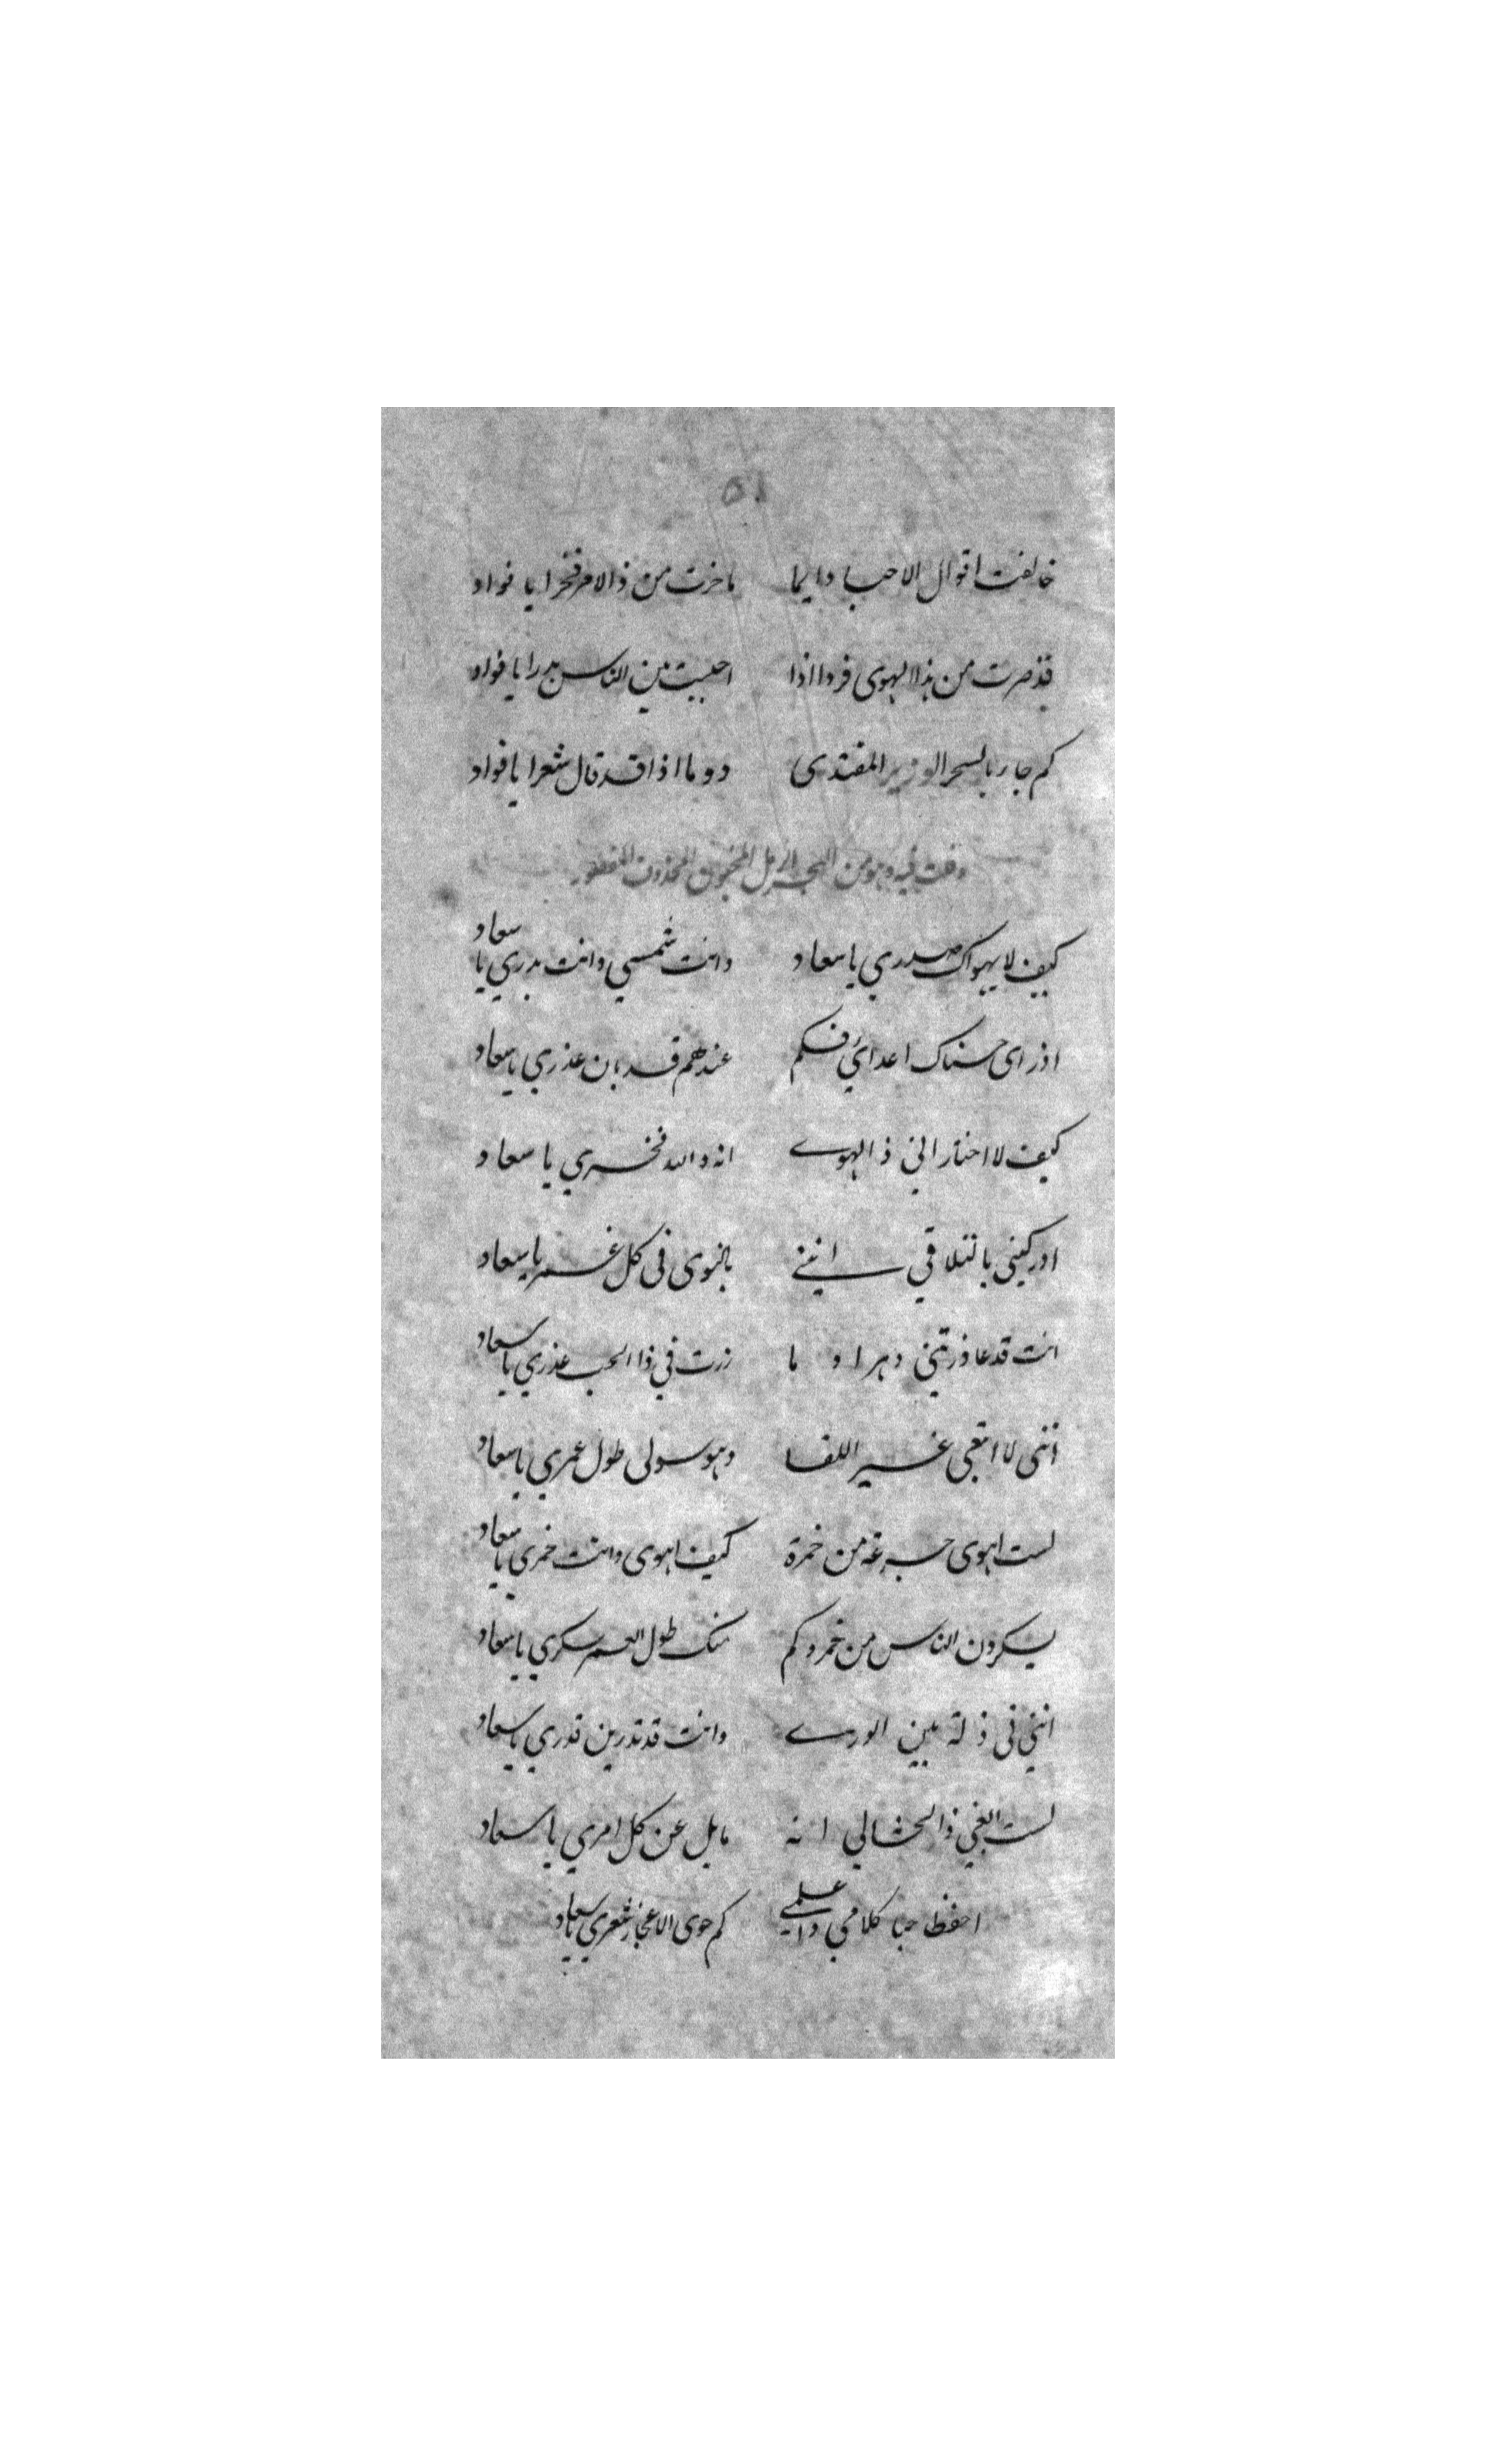 ٥١
خالفت اقوال الاحبا دايما ما خرت من ذالامر فخرا يا فواد
قد صرت من هذا الهوى فردا اذا احببت بين الناس بدرا يا فواد
كم جا ربالسحر الوزير المقتدى دوما اذا قد قال شعرا يا فواد
وقلت فيه وهو من البحر الرمل المخبون المحذوف
كيف لا يهواك صدري يا سعاد وانت شمسي وانت بدري يا سعاد
اذ راى حسناك اعدائي فكم عندهم قد بان عذري يا سعاد
كيف لا اختار اني ذالهوى انه والله فخري يا سعاد
ادركيني بالتلاقي انني بالنوى في كل غمر يا سعاد
انت قد عاذرتني دهرا و ما زرت في ذا الحب عذري يا سعاد
انني لا ابتغي غير اللقا وهو سولى طول عمري يا سعاد
لست اهوى جرعة من خمرة كيف اهوى وانت خمري يا سعاد
يسكرون الناس من خمر وكم منك طول العمر سكري يا سعاد
انني في ذلة بين الورى وانت قد تدرين قدري يا سعاد
لست ابغي ذالخالي انه مايل عن كل امري يا سعاد
احفظ حبا كلامي واعلمي كم حوى الاعجاز شعري يا سعاد